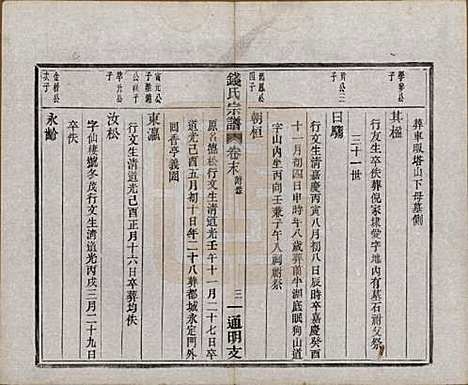 葬車服塔山下母墓側
學參公
子
其楹
行友生卒佚葬倪家塘愛字地內有墓石祔父祭
三十一世
公三
子
曰驕
行文生清嘉慶丙寅八月初八日辰時卒嘉慶癸酉
十一月初四日申時年八歲葬前半湖底眠狗山道
字山內坐丙向壬兼子午入祠祔祭
鳳公
四子
朝桓
原名德松行文生清道光壬午十一月二十七日卒
錢氏宗譜
卷末
三
通明支
道光己酉五月初十日年二十八葬都城永定門外
回香亭義園
寅元公
子
東瀛
行文生清道光己酉正月十六日卒葬均佚
公
子
汝松
字仙樓號冬茂行文生清道光丙戌三月二十九日
卒佚
公
次子
永齡